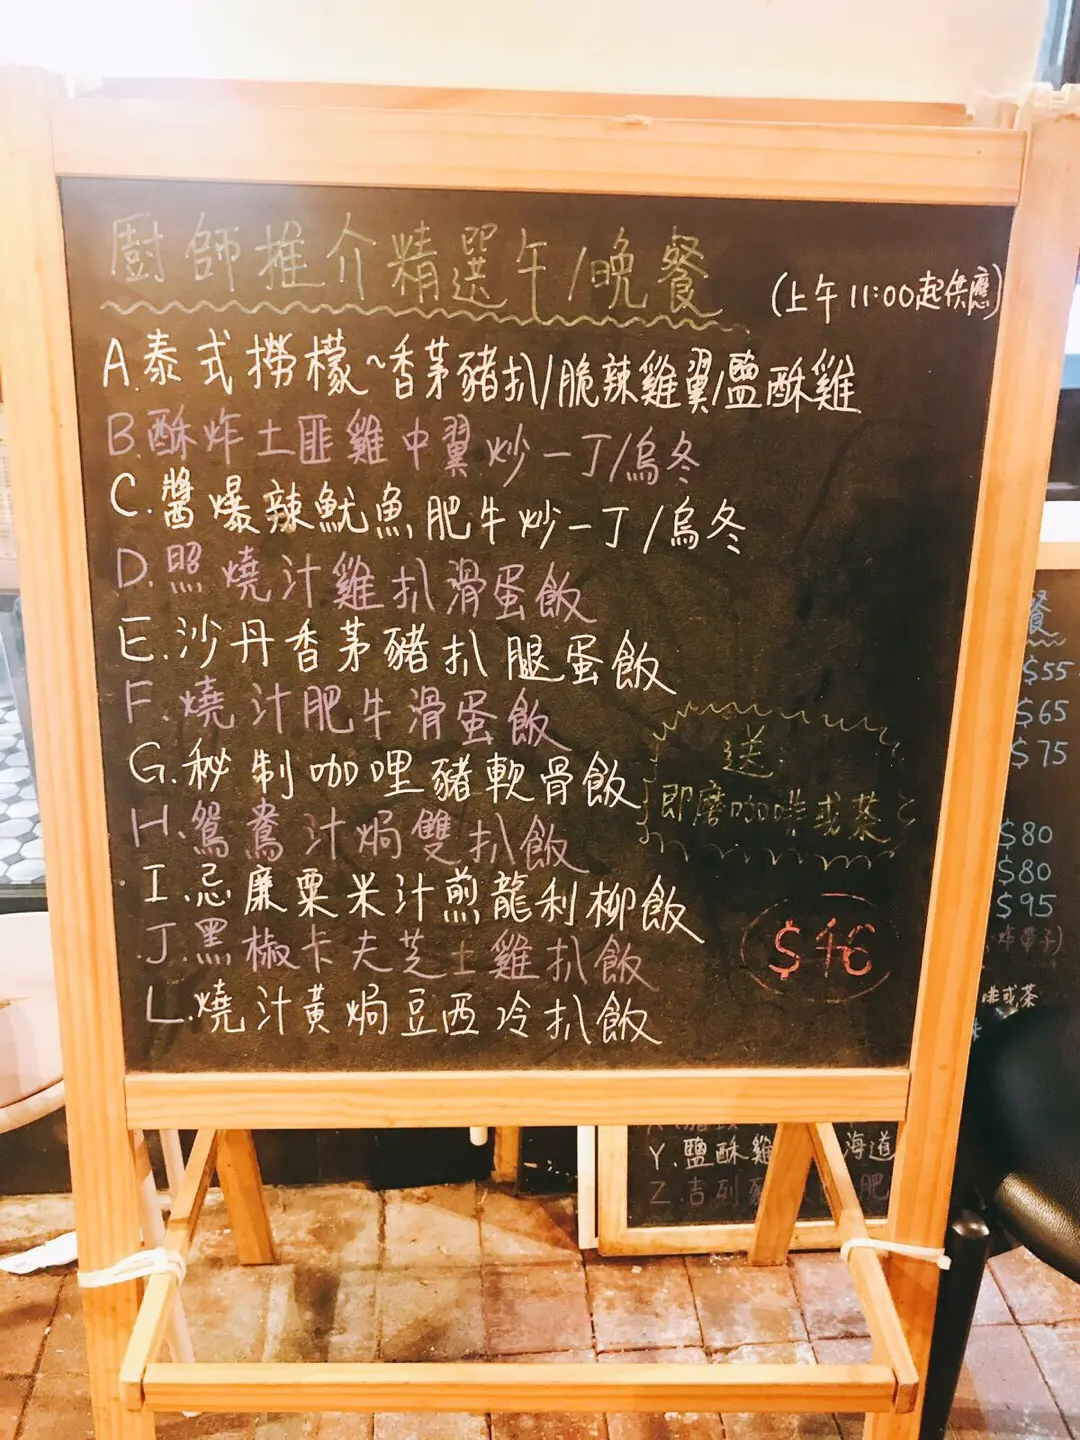 廚師推介精選午/晚餐
(上午11:00起供應)
A.泰式撈檬~香茅豬扒/脆辣雞翼/鹽酥雞
B.酥炸土匪雞中翼炒一丁/烏冬
C.醬爆辣魷魚肥牛炒一丁/烏冬
D.照燒汁雞扒滑蛋飯
E.沙丹香茅豬扒腿蛋飯
F.燒汁肥牛滑蛋飯
G.秘制咖哩豬軟骨飯
送
即磨咖啡或茶
H.鴛鴦汁焗雙扒飯
I.忌廉粟米汁煎龍利柳飯
J.黑椒卡夫芝士雞扒飯
$46
L.燒汁黃焗豆西冷扒飯
餐
$55
$65
$75
$80
$80
$95
炸帶子)
啡或茶
Y.鹽酥雞
海道
Z.吉列
肥